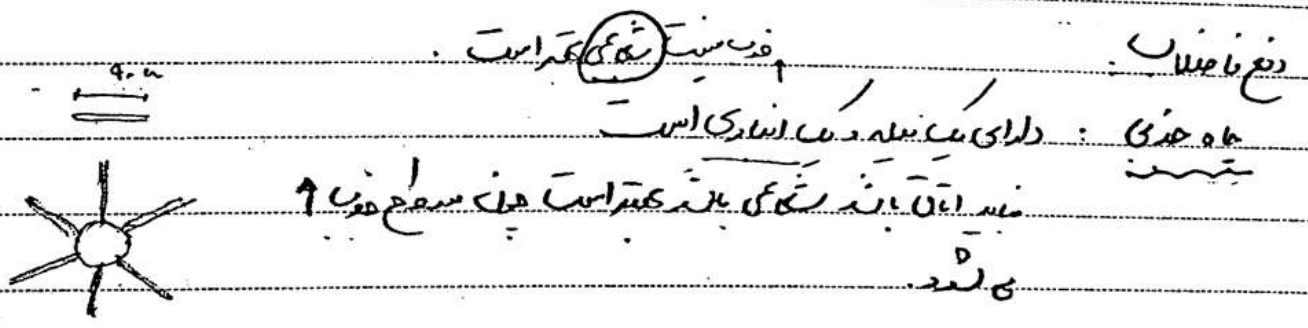 دفع فاضلاب : خوب نیست شعاعی بهتر است .
چاه جذبی : دارای یک میله و یک انباری است
نباید اتاق باشد شعاعی باشد بهتر است چون سطح جذب ↑
می شود.